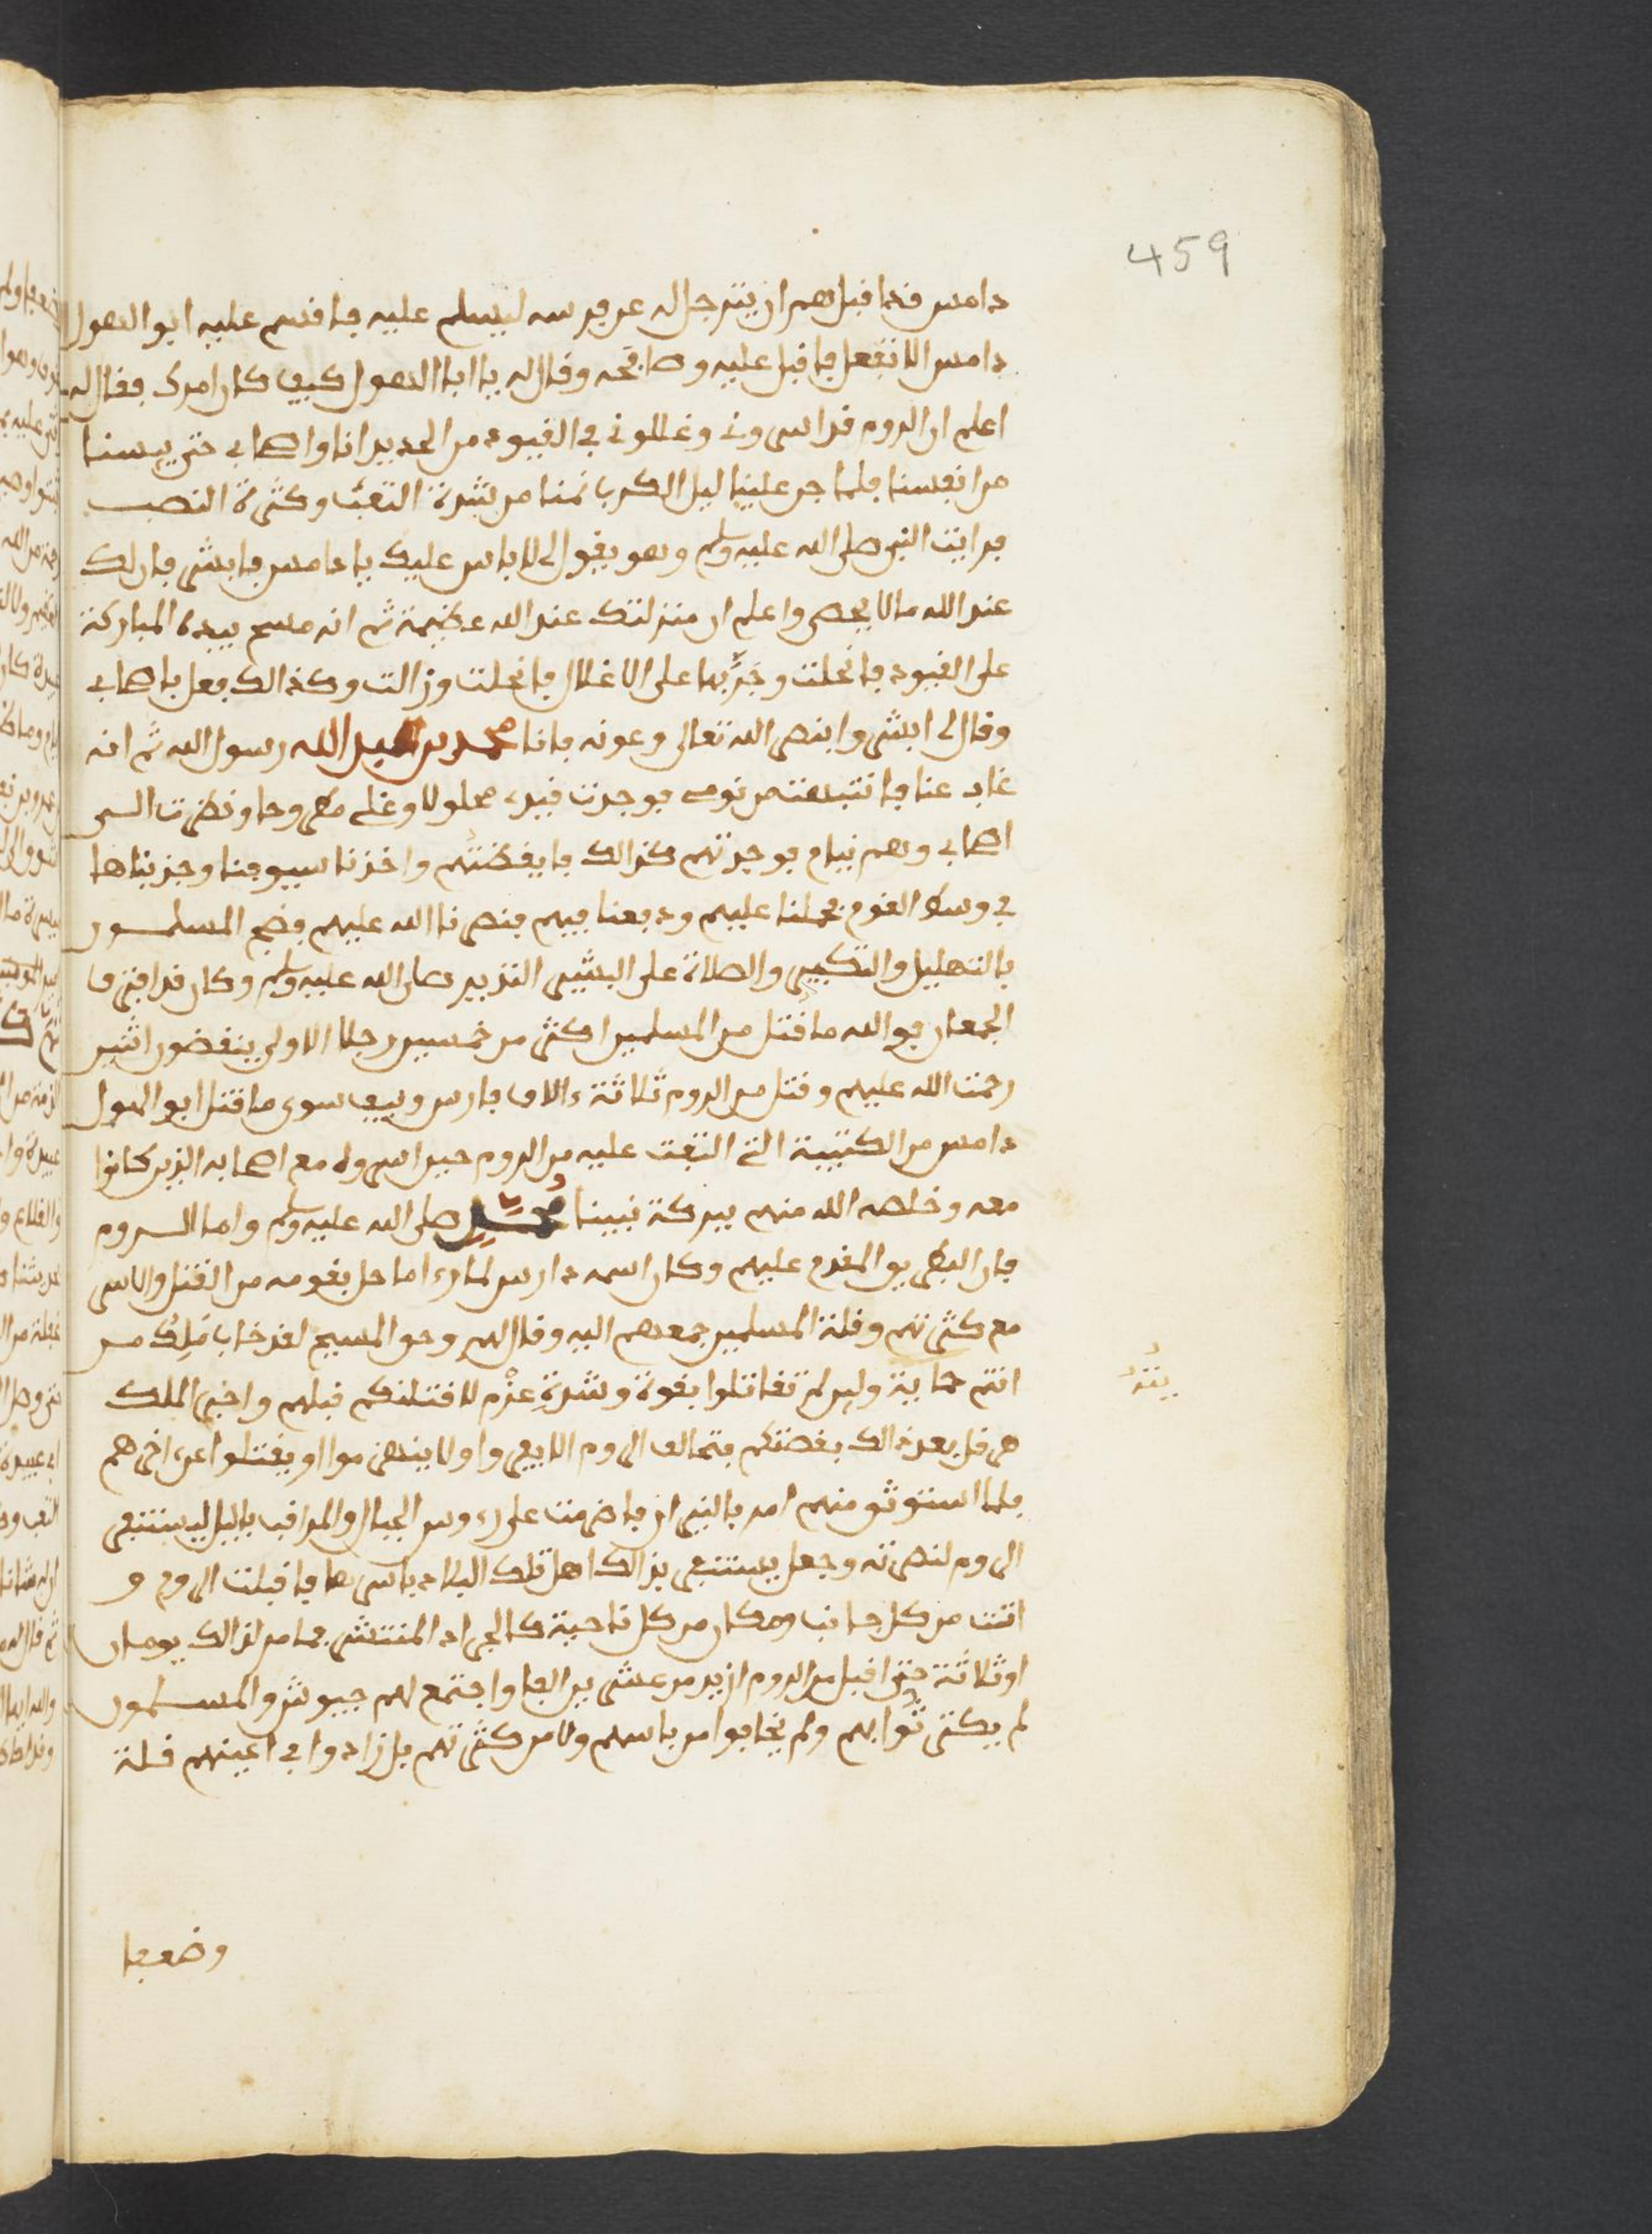 459
دامس قد اقبل هم ان يترجل له عن فرسه ليسلم عليه فاقسم عليه ابو الهول
دامس الا تفعل فاقبل عليه وصافحه وقال له يا ابا الهول كيف كان امرك فقال له
اعلم ان الروم قد اسروني وغللوني في القيود من الحديد انا واصحابي حتى يىسنا
من انفسنا فلما جن علينا ليل الكرب نمنا من شدة التعب وكثرة النصب
فرايت النبي صلى الله عليه وسلم وهو يقول لا باس عليك يا دامس فابشر فان لك
عند الله ما لا يحصى واعلم ان منزلتك عند الله عظيمة ثم انه مسح بيده المباركة
على القيود فانحلت وجرّبها على الاغلال فانحلت وزالت وكذالك فعل باصحابي
وقال لي ابشروا بنصر الله تعالى وعونه فانا محمد بن عبد الله رسول الله ثم انه
غاب عنا فانتبهت من نومي فوجدت قيدي محلولا وغلي مطروحا ونظرت الى
اصحابي وهم نيام فوجدتهم كذالك فايقضتهم واخذنا سيوفنا وجزناها
في وسط القوم فحملنا عليهم ودفعنا فيهم فنصرنا الله عليهم فضج المسلمون
بالتهليل والتكبير والصلاة على البشير النذير صلى الله عليه وسلم وكان قد افترقا
الجمعان فوالله ما قتل من المسلمين اكثر من خمسين رجلا الاولى ينقضون اثنين
رحمت الله عليهم وقتل من الروم ثلاثة ءالاف فارس ونيف سوى ما قتل ابو الهول
دامس من الكتيبة التي التقت عليه من الروم حين اسروه مع اصحابه الذين كانوا
معه وخلصه الله منهم ببركة نبينا محمد صلى الله عليه وسلم واما الروم
فان البطريق المقدم عليهم وكان اسمه دارس لما رءا ما حل بقومه من القتل والاسر
مع كثرتهم وقلة المسلمين جمعهم اليه وقال لهم وحق المسيح لقد خاب ملك من
انتم حمايه ولين لم تقاتلوا بقوة وشدة عزْم لاقتلنكم قبلهم واخبر الملك
هرقل بعد ذالك بقصتكم فتحالف الروم الا يفروا ولا ينهزموا او يقتلوا عن اخرهم
فلما استوثق منهم امر بالنيران فاضرمت على رءوس الجبال والمراقب بالليل ليستنفر
الروم لنصرته وجعل يستنفر بذالك اهل تلك البلاد باسرها فاقبلت الروم و
اتت من كل جانب ومكان من كل ناحية كالجراد المنتشر فما مر لذالك يومان
او ثلاثة حتى اقبل من الروم ازيد من عشرين الفا واجتمع لهم جيوش والمسلمون
لم يكترثوا بهم ولم يخافوا من باسهم ولا من كثرتهم بل زادوا في اعينهم قلة
وضعفا